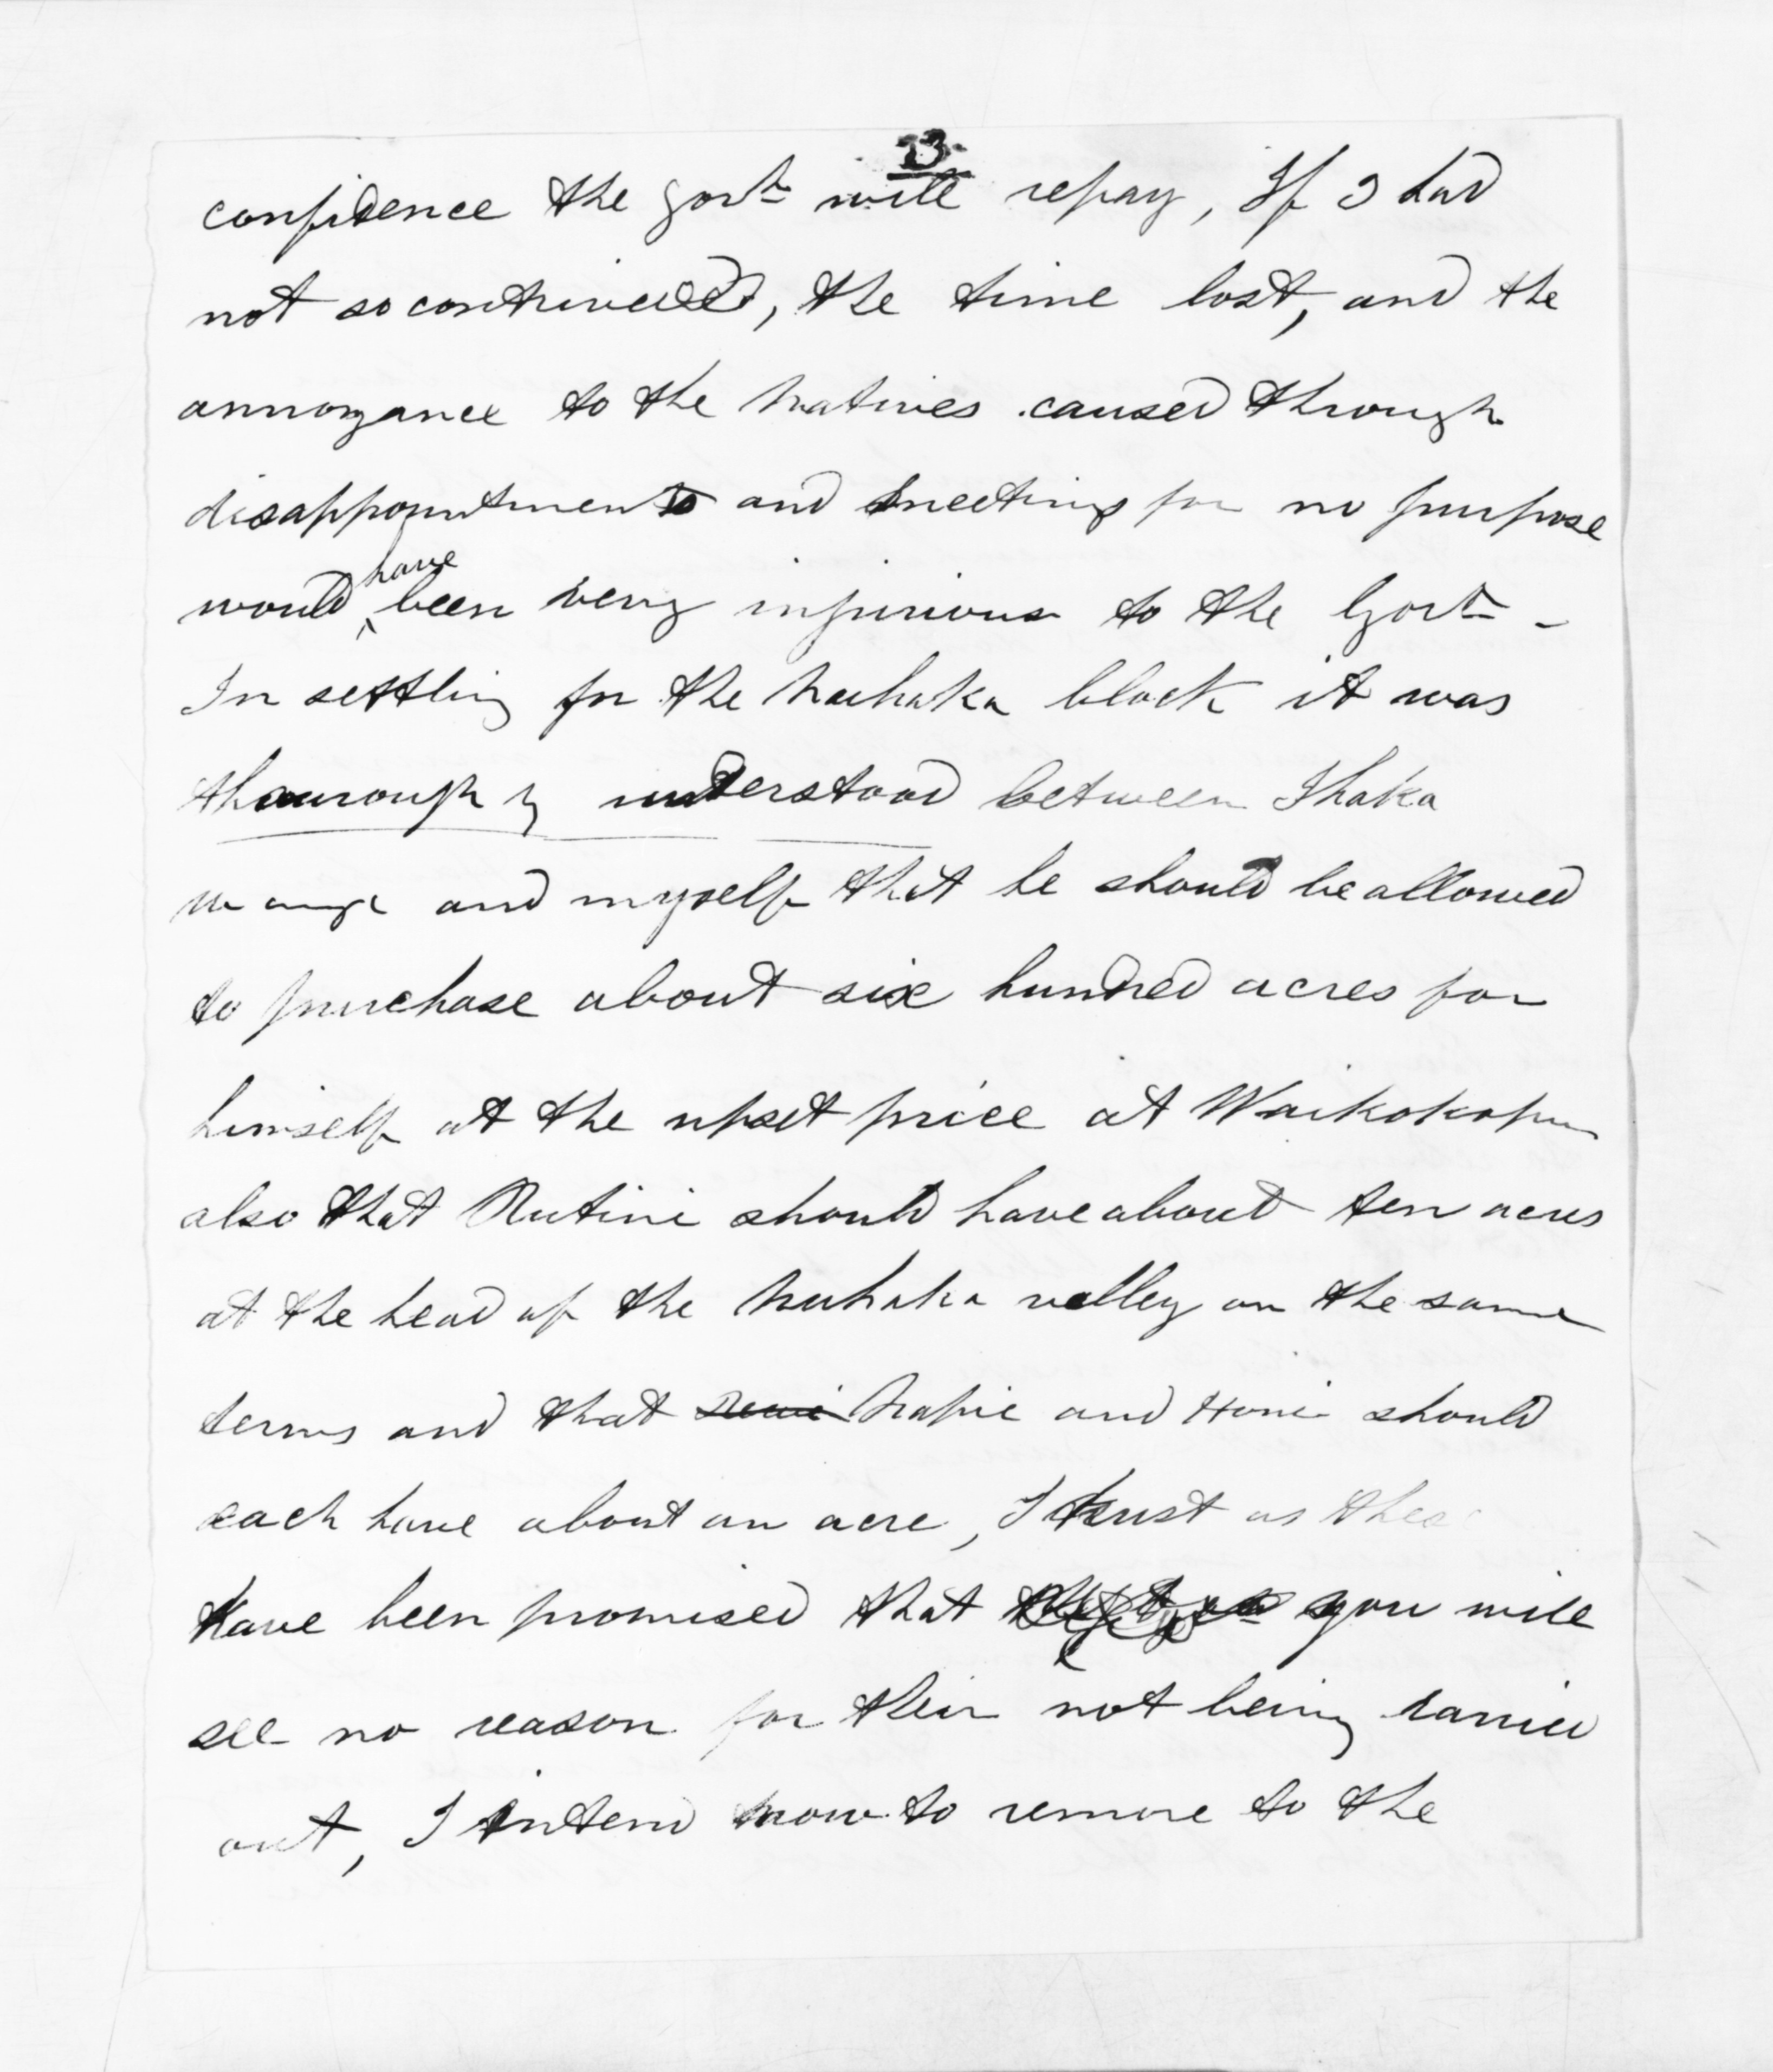 13.
confidence the Govt will repay, If I had
not so contrived, the time lost, and the
annoyance to the natives caused through
disappointments and meetings for no purpose
would have been very injurious to the Govt -
In settling for the Nuhaka block it was
thourough y understood between Ihaka
and myself that he should be allowed
to purchase about six hundred acres for
himself at the upset price at Waikokopu
also that Rutini should have about ten acres
at the head of the Nuhaka valley on the same
terms and that Napie and Honi should
each have about an acre, I trust as thes
have been promised that you will
see no reason for their not being carried
out, I intend now to remove to the